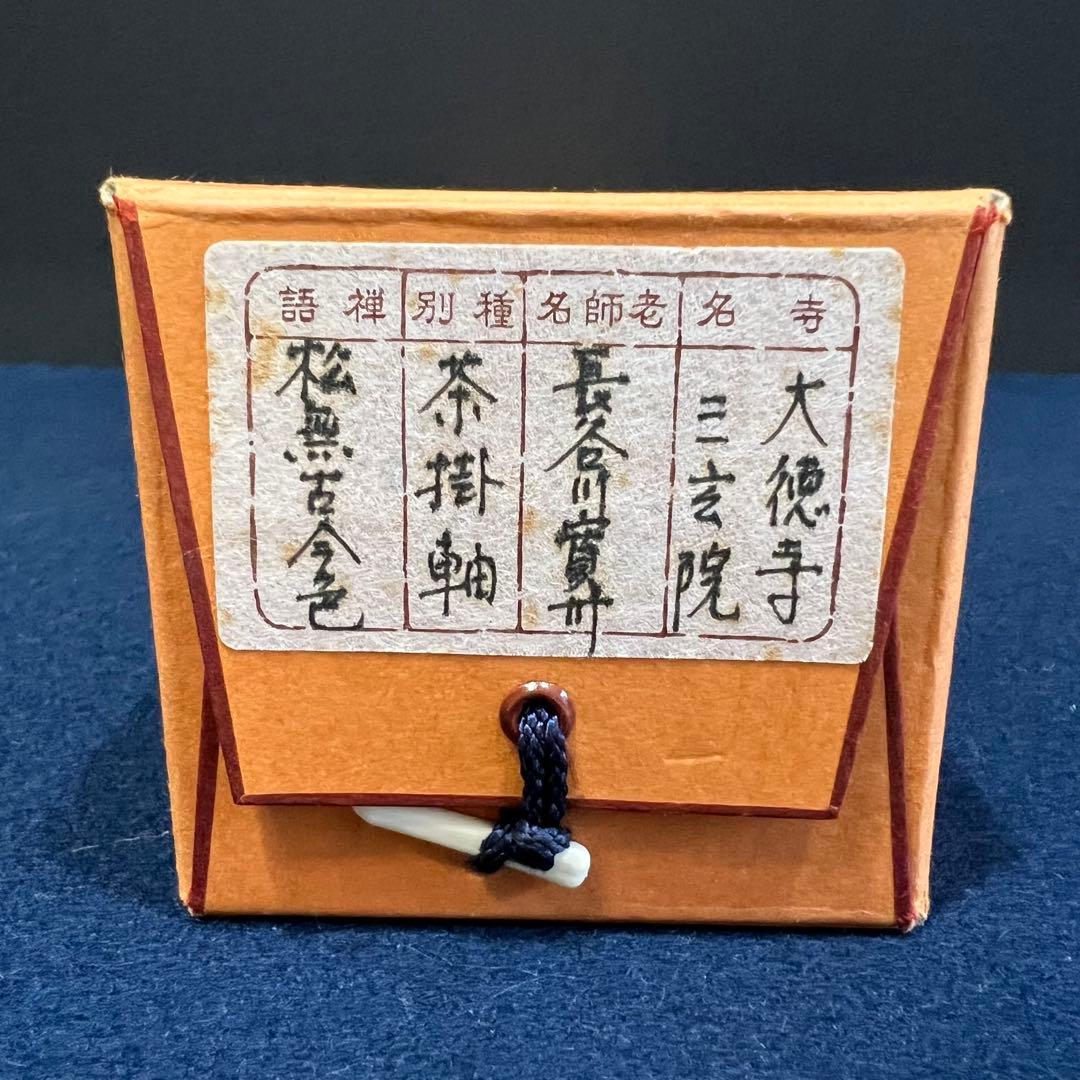 寺名
大徳寺
三玄院
老師名
長谷川寛州
種別
茶掛軸
禅語
松無古今色